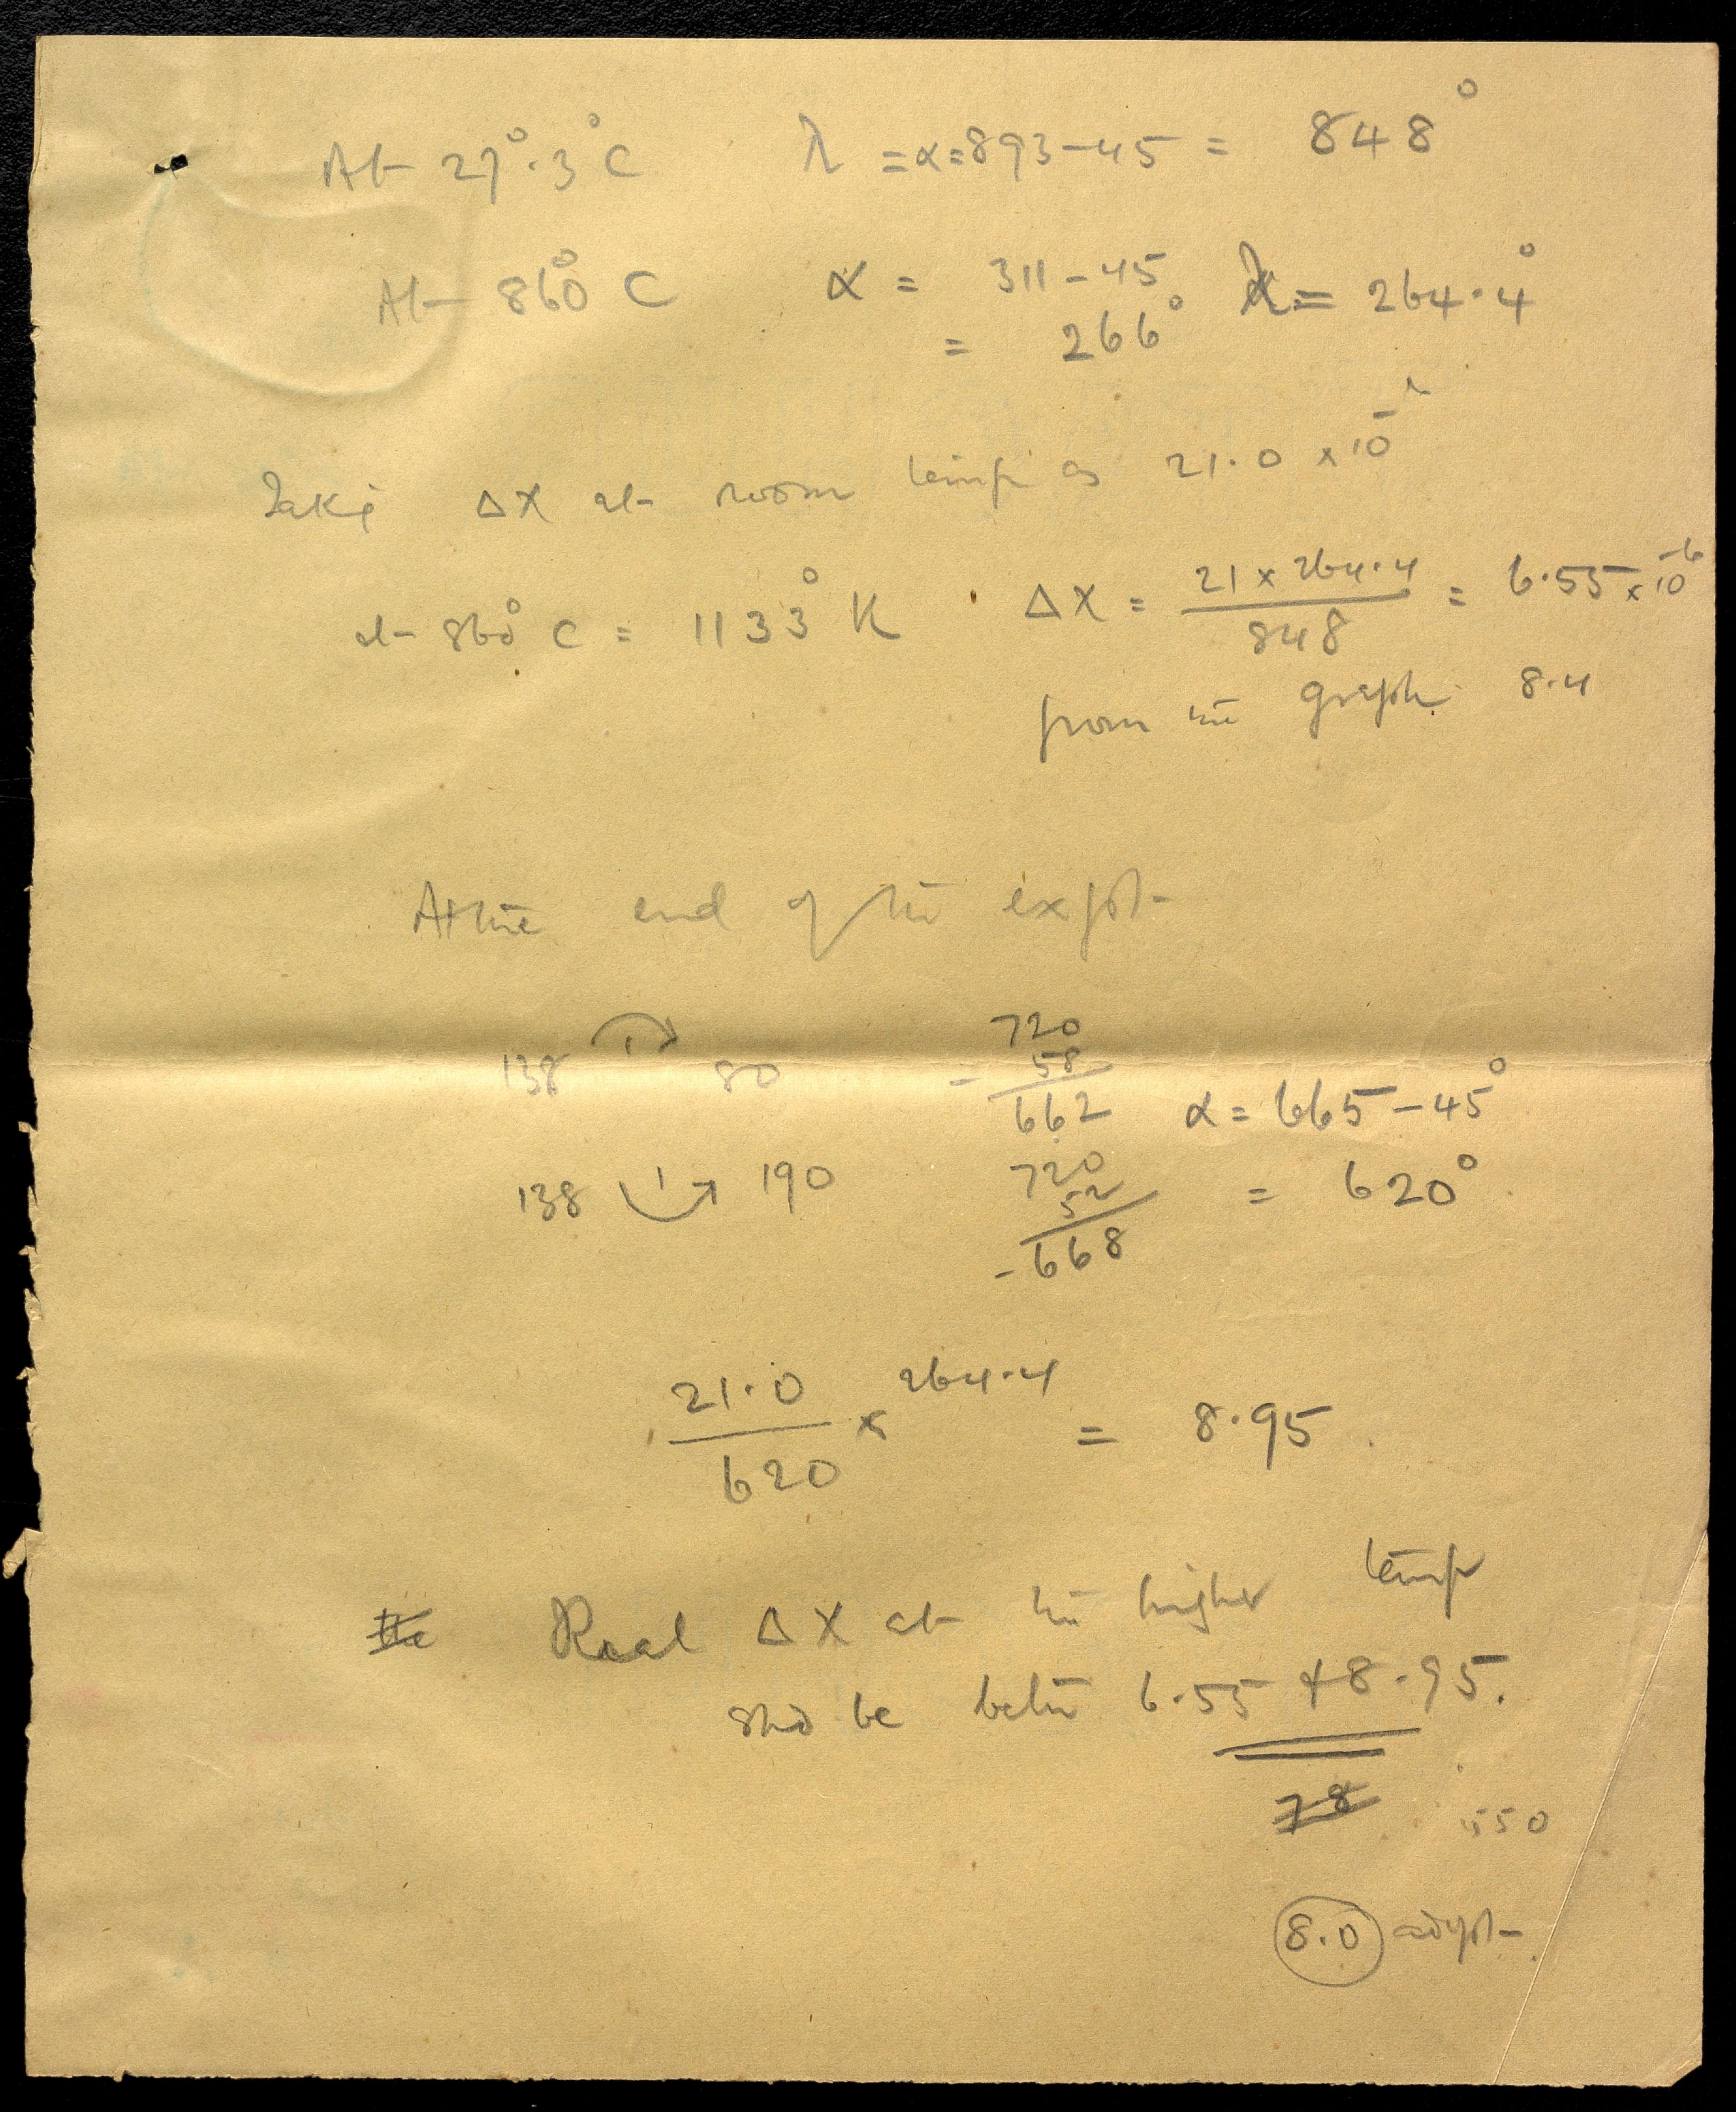 At 27°.3°C λ = α = 893 – 45 = 848°
At 860°C α = 311 – 45 λ = 264.4°
= 266°
Take Δχ at room temp as 21.0 × 10
at 860°C = 1133°K Δχ = 21 × 264.4 / 848 = 6.55 × 10⁻⁶
from the graph 8.4
At the end of the expt
138 80 – 720
58
662 α = 665 – 45°
138 190 720 = 620°
52
– 668
21.0 / 620 × 264.4 = 8.95
Real Δχ at the higher temp
shd be betn 6.55 & 8.95.
7.8 550
8.0 adopt